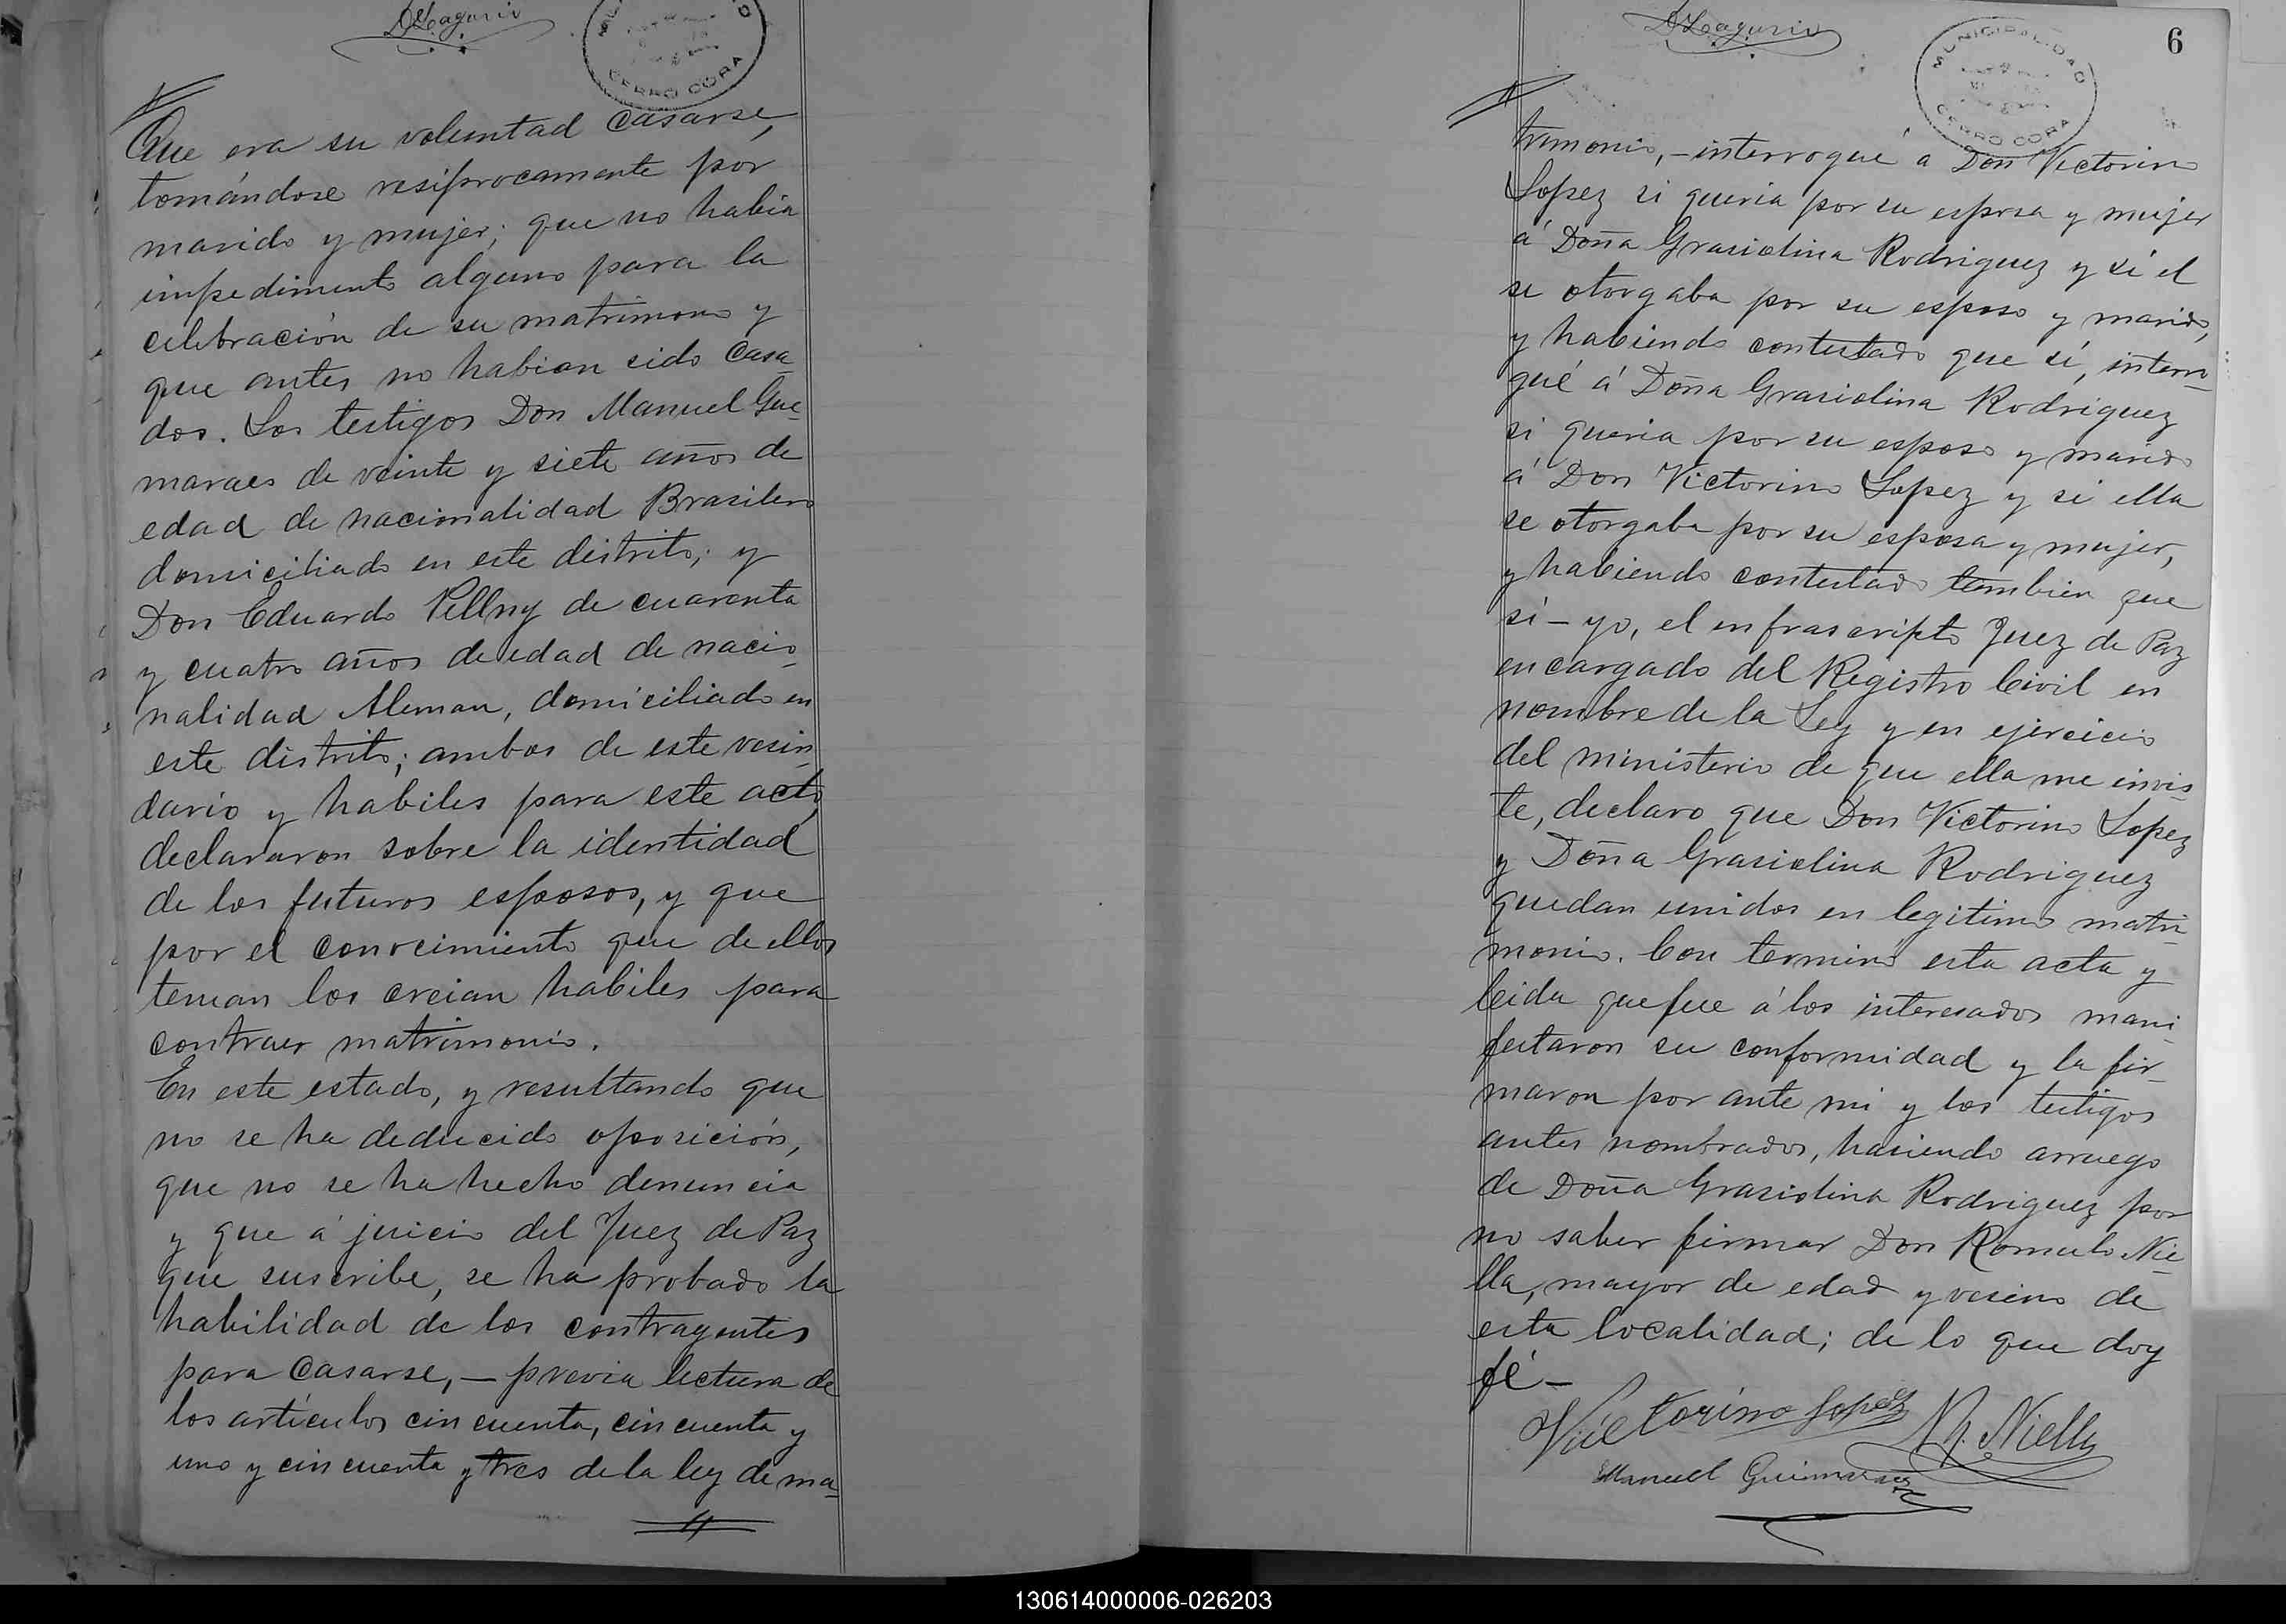 MUNICIPALIDAD
CERRO CORA
Que era su voluntad casarse,
tomándose resiprocamente por
marido y mujer; que no habia
impedimento alguno para la
celebración de su matrimonio y
que antes no habian sido casa-
dos. Los testigos Don Manuel Gue-
maraes de veinte y siete años de
edad de nacionalidad Brasilero
domiciliado en este distrito; y
Don Eduardo Pellny de cuarenta
y cuatro años de edad de nacio-
nalidad Aleman, domiciliado en
este distrito; ambos de este vesin-
dario y habiles para este acto,
declararon sobre la identidad
de los futuros esposos, y que
por el conocimiento que de ellos
tenian los creian habiles para
contraer matrimonio.
En este estado, y resultando que
no se ha deducido oposición,
que no se ha hecho denuncia
y que á juicio del Juez de Paz
que suscribe, se ha probado la
habilidad de los contrayentes
para casarse, — previa lectura de
los artículos cincuenta, cincuenta y
uno y cincuenta y tres de la ley de ma-
6
MUNICIPALIDAD
CERRO CORA
trimonio, – interrogué á Don Victorino
Lopez si queria por su esposa y mujer
á Doña Grasiolina Rodriguez y si el
se otorgaba por su esposo y marido,
y habiendo contestado que sí, interro-
gué á Doña Grasiolina Rodriguez
si queria por su esposo y marido
á Don Victorino Lopez y si ella
se otorgaba por su esposa y mujer,
y habiendo contestado tembien que
sí – yo, el enfrascripto Juez de Paz
encargado del Registro Civil en
nombre de la Ley y en ejercicio
del ministerio de que ella me invis-
te, declaro que Don Victorino Lopez
y Doña Grasiolina Rodriguez
quedan unidos en legitimo matri-
monio. Con terminó esta acta y
leida que fue á los interesados mani-
festaron su conformidad y la fir-
maron por ante mi y los testigos
antes nombrados, hasiendo arruego
de Doña Grasiolina Rodriguez por
no saber firmar Don Romulo Nie-
lla, mayor de edad y vesino de
esta localidad; de lo que doy
fé –
Victorino Lopez R. Niella
Manuel Guimaraes
130614000006-026203